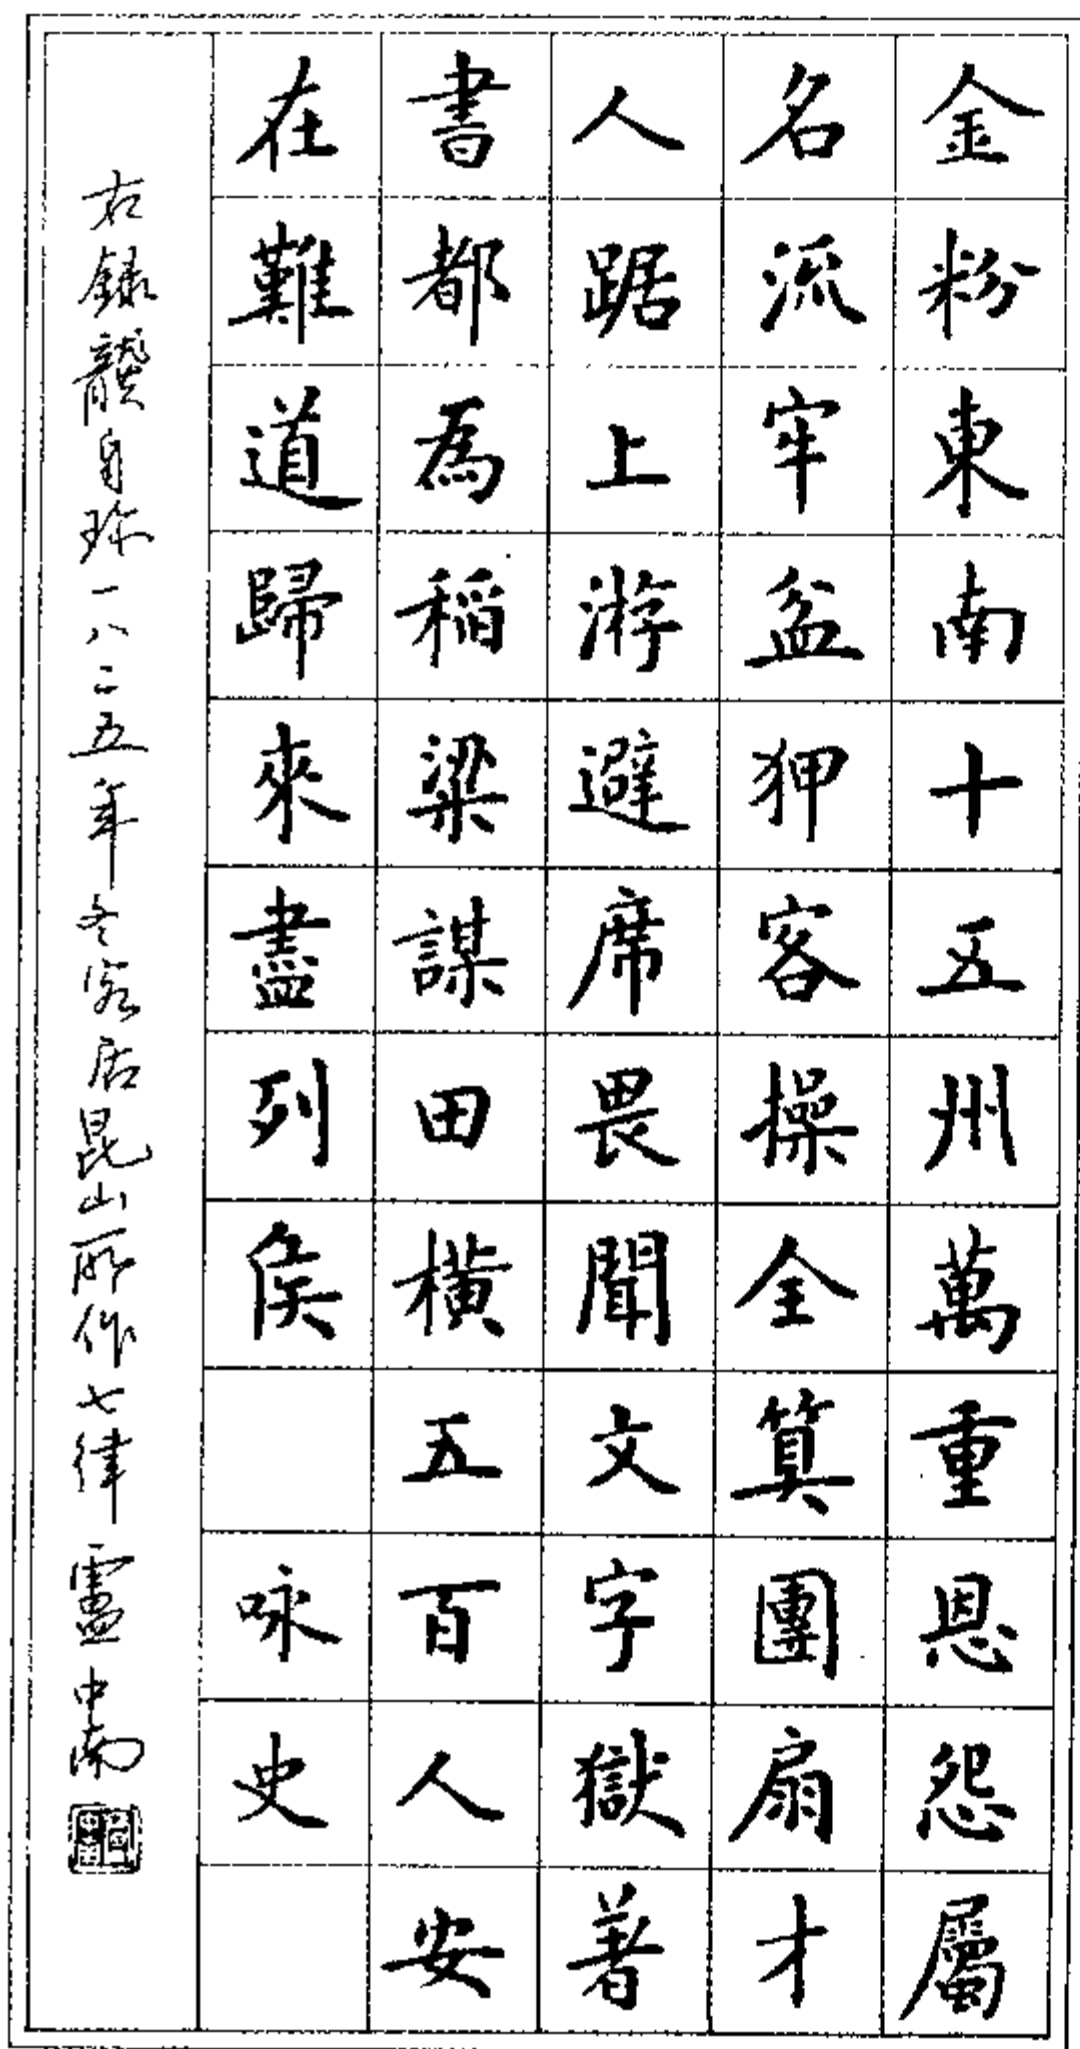 金粉東南十五州萬重恩怨屬
名流牢盆狎客操全算團扇才
人踞上游避席畏聞文字獄著
書都為稻粱謀田橫五百人安
在難道歸來盡列侯 咏史
右錄龔自珍一八二五年冬客居昆山所作七律 盧中南